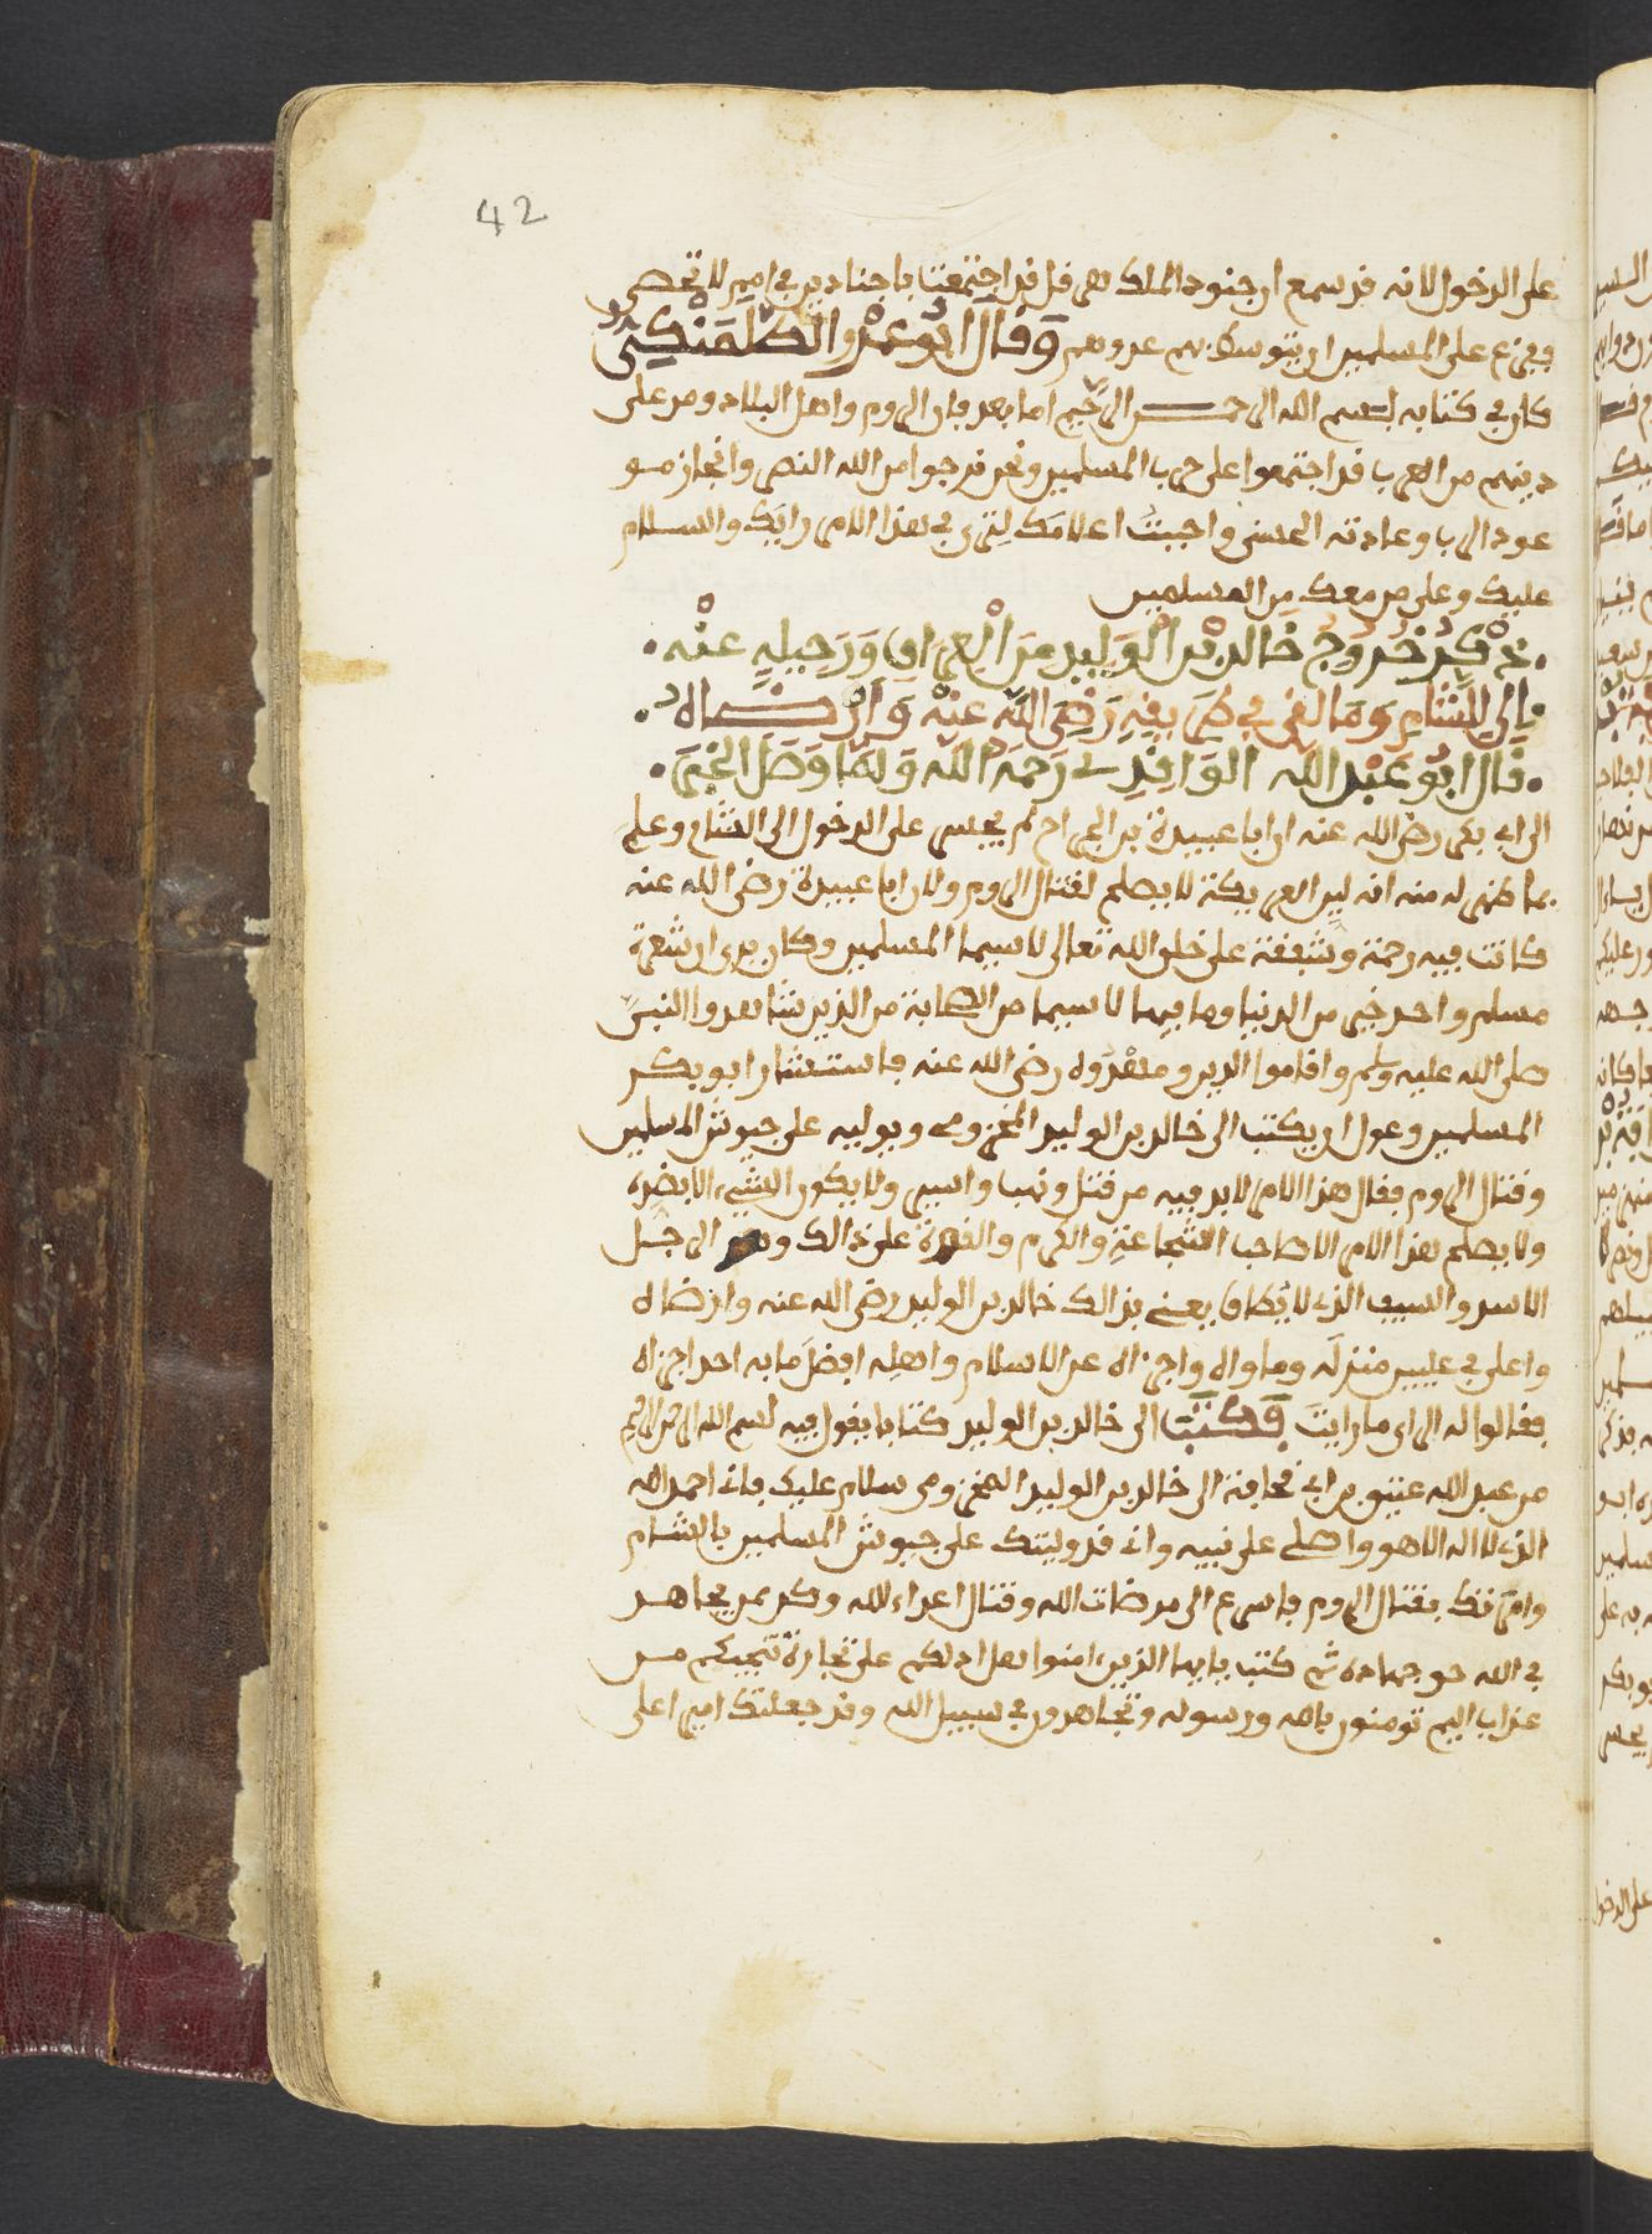 42
على الدخول لانه قد سمع ان جنود الملك هرقل قد اجتمعت باجنادين في امم لا تحصى
وفزع على المسلمين ان يتوسط بهم عدوهم وَقَالَ ابُو عَمْرو الطَّلَمَنْكِىُّ
كان في كتابه بسم الله الرحمن الرحيم اما بعد فان الروم واهل البلاد ومن على
دينهم من العرب قد اجتمعوا على حرب المسلمين ونحن نرجوا من الله النصر وانجاز مو
عود الرب وعادته الحسنى واحببتُ اعلامَك لِتَرى في هذا الامر رايَك والسلام
عليك وعلى من معك مِن المسلمين
ذِكْرُ خُرُوجُ خَالد بْن الْوَلِيد مِنَ الْعِرَاقِ وَرَحِيلِهِ عنْه
إِلى الشامِ وَمَا لقي في طَرِيقِهِ رَضِيَ اللَّه عَنْه وَأَرْضَاه
قَال ابُو عَبْد اللَّه الوَاقِدِي رَحِمَه اللَّه وَلَمَّا وَصَلَ الخَبَرُ
الى ابي بكر رضي الله عنه ان ابا عبيدة بن الجراح لم يجسر على الدخول الى الشام وعلم
بما ظهر له منه انه لين العريكة لا يصلح لقتال الروم ولان ابا عبيدة رضي الله عنه
كانت فيه رحمة وشفقة على خلق الله تعالى لا سيما المسلمين وكان يرى ان شعرة
مسلم واحد خير من الدنيا وما فيها لا سيما من الصحابة من الذين شاهدوا النبيّ
صلى الله عليه وسلم واقاموا الدين ومهْدَوه رضي الله عنه فاستشار ابو بكر
المسلمين وعول ان يكتب الى خالد بن الوليد المخزومي ويوليه على جيوش المسلمين
وقتال الروم فقال هذا الامر لا بد فيه من قتل ونهب واسبى ولا يكون الشيء الا بضده
ولا يصلح لهذا الامر الا صاحب الشجاعةِ والكرم والقدرة على ذالك وهو الرجل
الاسد والسيف الذي لا يُطاق يعني بذالك خالد بن الوليد رضي الله عنه وارضاه
واعلى في عليين منزله وماواه وجزاه عن الاسلام واهلِه افضلَ ما به احد اجزاه
فقالوا له الراي ما رايتَ فَكَتَبَ الى خالد بن الوليد كتابا يقول فيه بسم الله الرحمن الرحيم
من عبد الله عتيق بن ابي قحافة الى خالد بن الوليد المخزومي سلام عليك فاني احمد الله
الذي لا اله الا هو واصلي على نبيه واني قد وليتك على جيوش المسلمين بالشام
وامرتك بقتال الروم فاسرع الى مرضات الله وقتال اعداء الله وكن ممن يجاهد
في الله حق جهاده ثم كتب يايها الذين ءامنوا هل ادلكم على تجارة تنجيكم من
عذاب اليم تومنون بالله ورسوله وتجاهدون في سبيل الله وقد جعلتك اميرا على